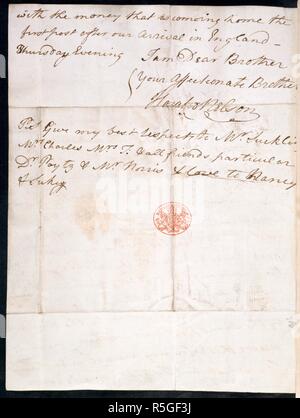 with the money that is coming home the
first post after our arrival in England —
Thursday Evening I am Dear Brother
Your Affectionate Brother
Horatio Nelson
Pray Give my best respects to Mr. Suckling
Mrs. Charles Mrs. T. & all friends particular
Dr. Poyntz & Mr. Norris & love to Harry
& Sukey
alamy
R5GF3J